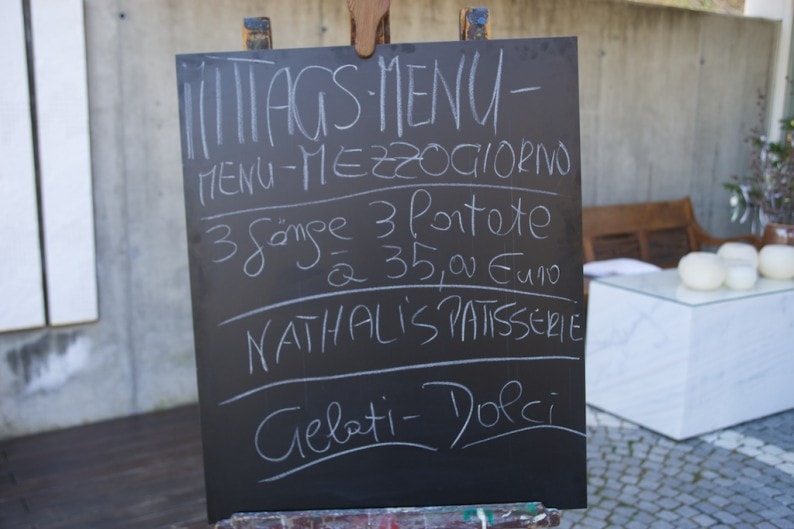 MITTAGS-MENU-
MENU-MEZZOGIORNO
3 Gänge 3 Portate
à 35,00 Euro
NATHALI'S PATISSERIE
Gelati-Dolci